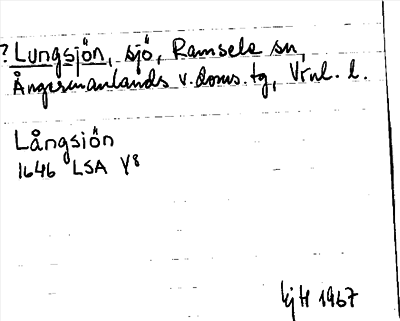 ? Lungsjön, sjö, Ramsele sn,
Ångermanlands v. doms. tg, Vrnl. l.
Långsjön
1646 LSA Y8
KjH 1967